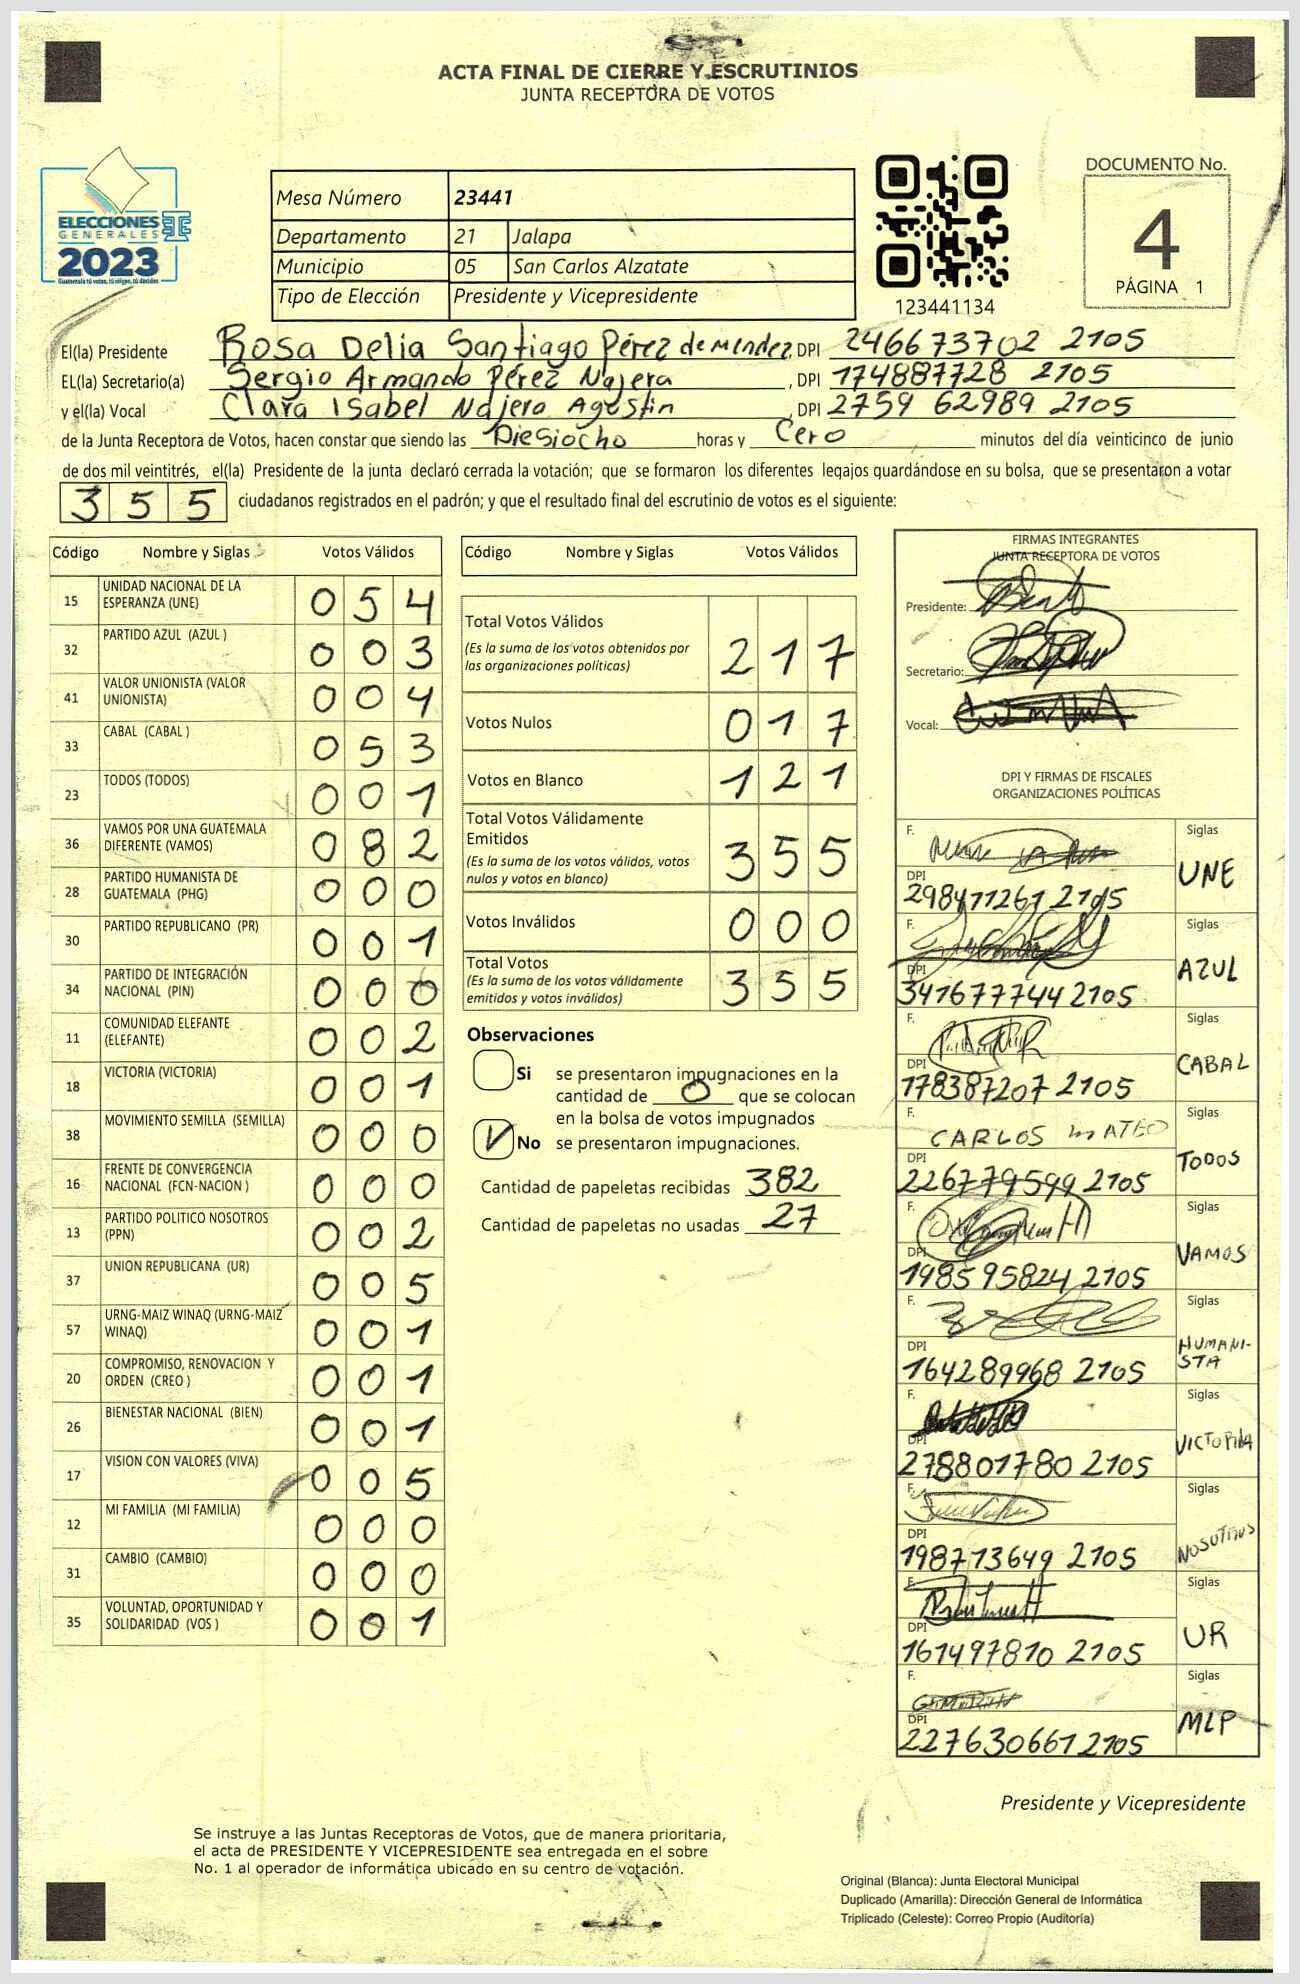 ACTA FINAL DE CIERRE Y ESCRUTINIOS
JUNTA RECEPTORA DE VOTOS
ELECCIONES
GENERALES
2023
Guatemala tú votas, tú eliges, tú decides
Mesa Número 23441
Departamento 21 Jalapa
Municipio 05 San Carlos Alzatate
Tipo de Elección Presidente y Vicepresidente
123441134
DOCUMENTO No.
4
PÁGINA 1
El(la) Presidente Rosa Delia Santiago Pérez de Mendez, DPI 246673702 2105
EL(la) Secretario(a) Sergio Armando Pérez Najera, DPI 174887728 2105
y el(la) Vocal Clara Isabel Najera Agustin, DPI 2759 62989 2105
de la Junta Receptora de Votos, hacen constar que siendo las Diesiocho horas y Cero minutos del día veinticinco de junio
de dos mil veintitrés, el(la) Presidente de la junta declaró cerrada la votación; que se formaron los diferentes legajos guardándose en su bolsa, que se presentaron a votar
355 ciudadanos registrados en el padrón; y que el resultado final del escrutinio de votos es el siguiente:
Código Nombre y Siglas Votos Válidos
15 UNIDAD NACIONAL DE LA ESPERANZA (UNE) 054
32 PARTIDO AZUL (AZUL ) 003
41 VALOR UNIONISTA (VALOR UNIONISTA) 004
33 CABAL (CABAL ) 053
23 TODOS (TODOS) 001
36 VAMOS POR UNA GUATEMALA DIFERENTE (VAMOS) 082
28 PARTIDO HUMANISTA DE GUATEMALA (PHG) 000
30 PARTIDO REPUBLICANO (PR) 001
34 PARTIDO DE INTEGRACIÓN NACIONAL (PIN) 000
11 COMUNIDAD ELEFANTE (ELEFANTE) 002
18 VICTORIA (VICTORIA) 001
38 MOVIMIENTO SEMILLA (SEMILLA) 000
16 FRENTE DE CONVERGENCIA NACIONAL (FCN-NACION ) 000
13 PARTIDO POLITICO NOSOTROS (PPN) 002
37 UNION REPUBLICANA (UR) 005
57 URNG-MAIZ WINAQ (URNG-MAIZ WINAQ) 001
20 COMPROMISO, RENOVACION Y ORDEN (CREO ) 001
26 BIENESTAR NACIONAL (BIEN) 001
17 VISION CON VALORES (VIVA) 005
12 MI FAMILIA (MI FAMILIA) 000
31 CAMBIO (CAMBIO) 000
35 VOLUNTAD, OPORTUNIDAD Y SOLIDARIDAD (VOS ) 001
Código Nombre y Siglas Votos Válidos
Total Votos Válidos 217
(Es la suma de los votos obtenidos por
las organizaciones políticas)
Votos Nulos 017
Votos en Blanco 121
Total Votos Válidamente
Emitidos 355
(Es la suma de los votos válidos, votos
nulos y votos en blanco)
Votos Inválidos 000
Total Votos 355
(Es la suma de los votos válidamente
emitidos y votos inválidos)
Observaciones
Si se presentaron impugnaciones en la
cantidad de 0 que se colocan
en la bolsa de votos impugnados
No se presentaron impugnaciones.
Cantidad de papeletas recibidas 382
Cantidad de papeletas no usadas 27
FIRMAS INTEGRANTES
JUNTA RECEPTORA DE VOTOS
Presidente:
Secretario:
Vocal:
DPI Y FIRMAS DE FISCALES
ORGANIZACIONES POLÍTICAS
F. Siglas
DPI UNE
298411261 2105
F. Siglas
DPI AZUL
341677744 2105
F. Siglas
DPI CABAL
178387207 2105
F. CARLOS MATEO Siglas
DPI TODOS
226779599 2105
F. Siglas
DPI VAMOS
198595824 2105
F. Siglas
DPI HUMANI-
STA
164289968 2105
F. Siglas
DPI VICTORIA
278801780 2105
F. Siglas
DPI NOSOTROS
198713649 2105
F. Siglas
DPI UR
161497810 2105
F. Siglas
DPI MLP
227630661 2105
Presidente y Vicepresidente
Se instruye a las Juntas Receptoras de Votos, que de manera prioritaria,
el acta de PRESIDENTE Y VICEPRESIDENTE sea entregada en el sobre
No. 1 al operador de informática ubicado en su centro de votación.
Original (Blanca): Junta Electoral Municipal
Duplicado (Amarilla): Dirección General de Informática
Triplicado (Celeste): Correo Propio (Auditoría)